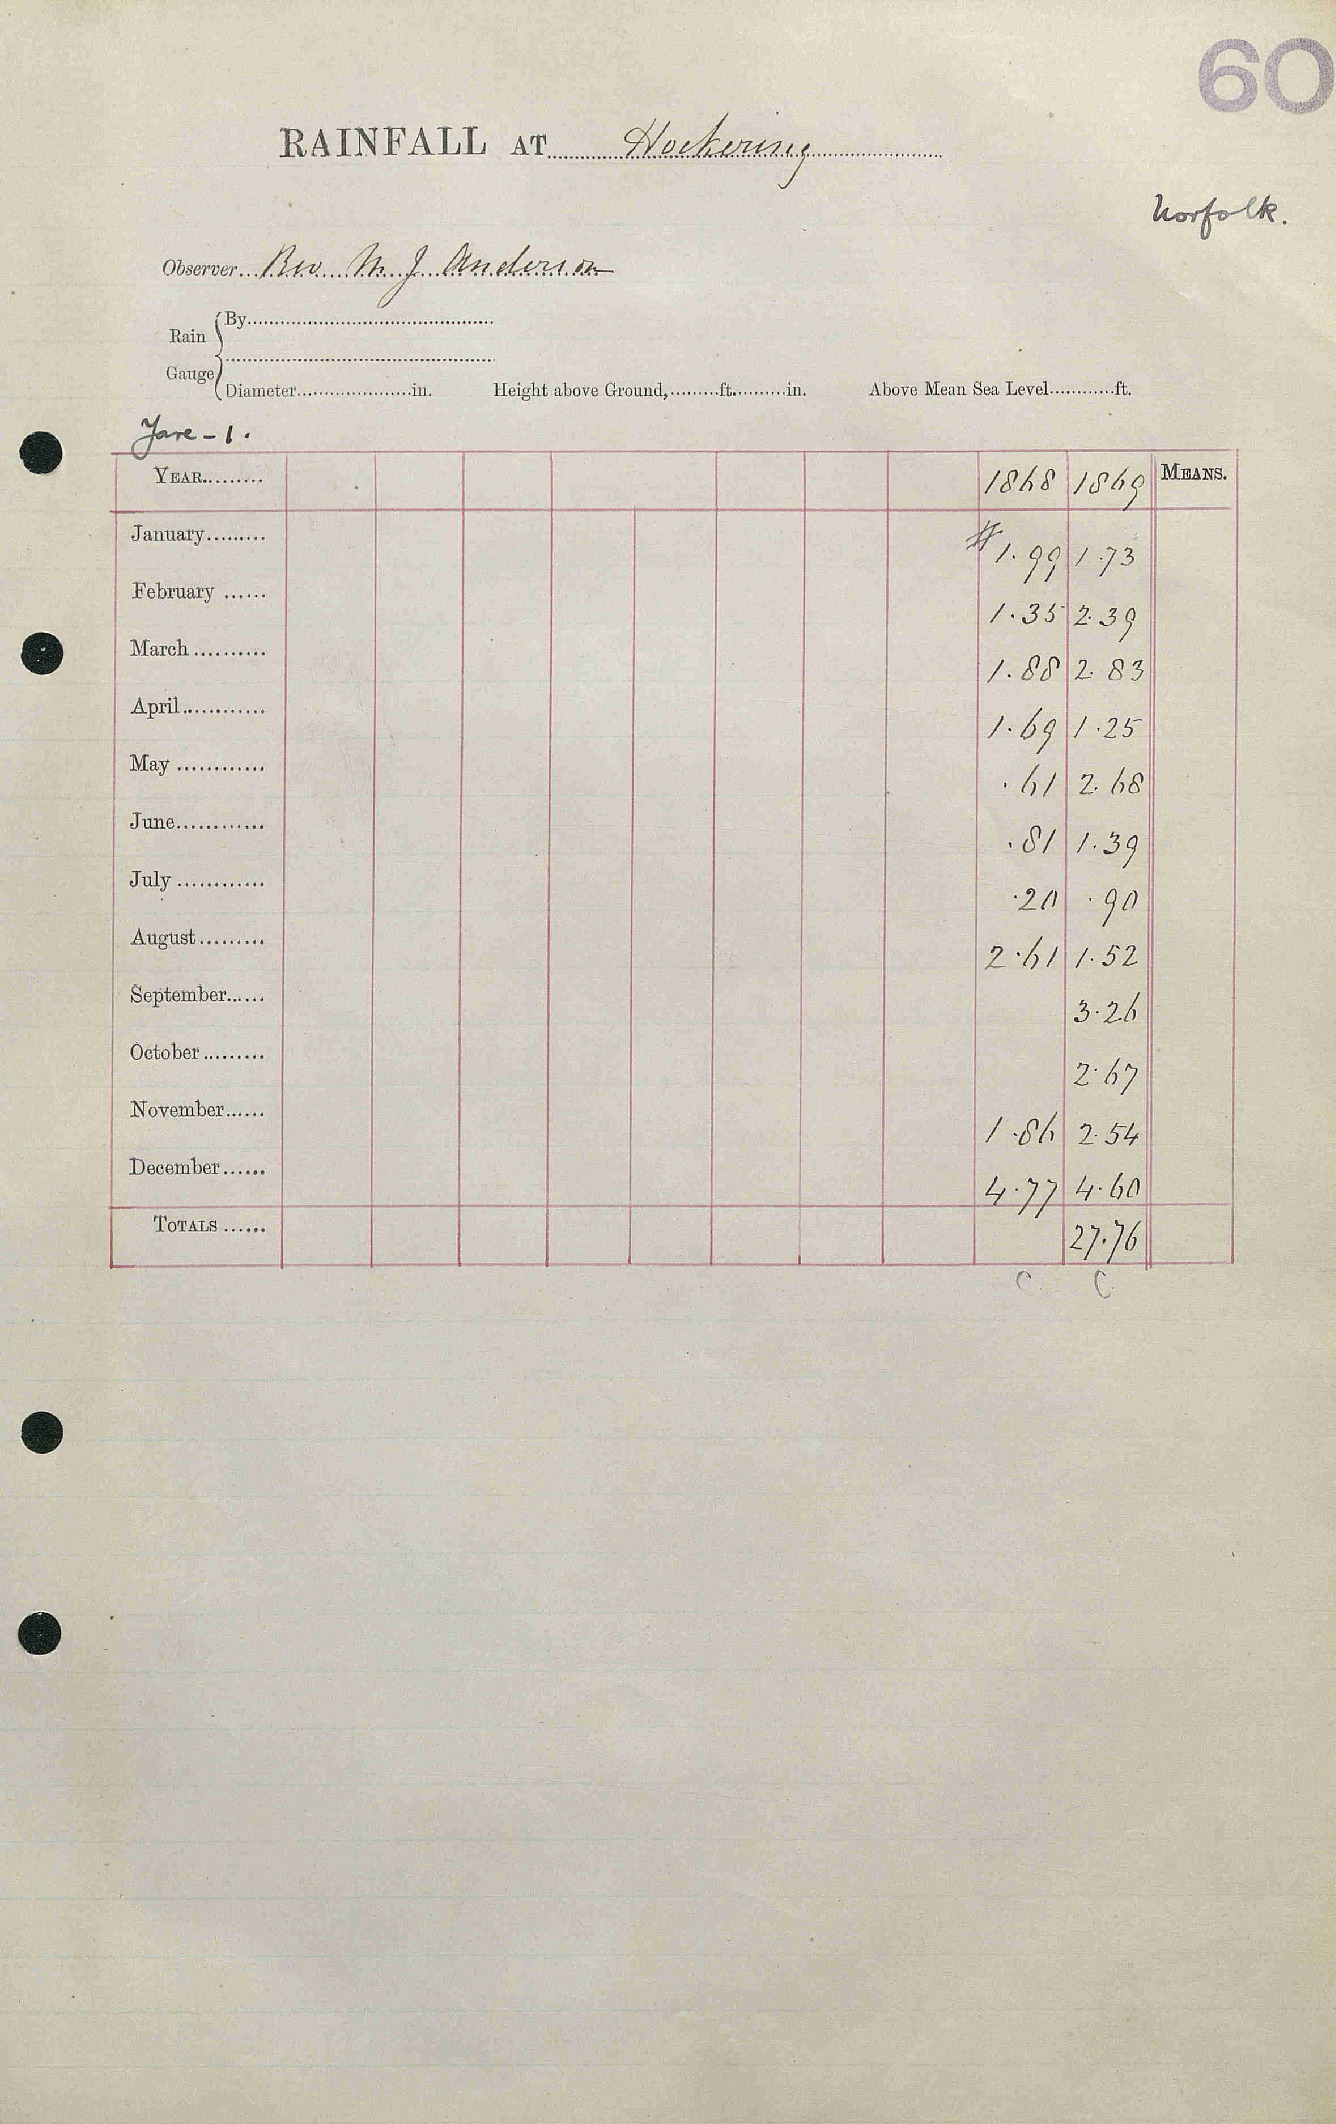 60
RAINFALL AT Hockering
Norfolk.
Observer Rev M. J. Anderson
Rain Gauge
By
Diameter in. Height above Ground, ft. in. Above Mean Sea Level ft.
Yare - 1.
YEAR 1868 1869 MEANS.
January # 1.99 1.73
February 1.35 2.39
March 1.88 2.83
April 1.69 1.25
May .61 2.68
June .81 1.39
July .20 .90
August 2.61 1.52
September 3.26
October 2.67
November 1.86 2.54
December 4.77 4.60
TOTALS 27.76
C C